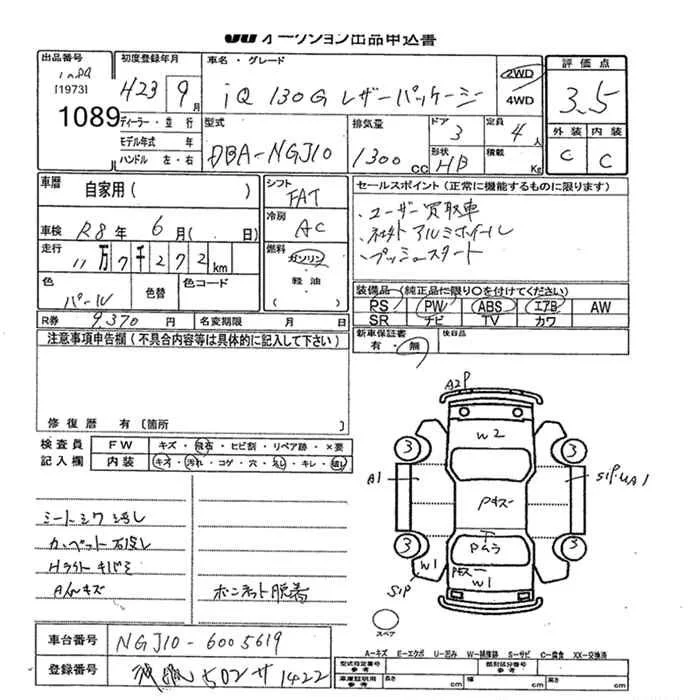 JU オークション出品申込書
出品番号 初度登録年月 車名・グレード 評価点
[1973] H23 9月 iQ 130G レザーパッケージ 2WD 4WD 3.5
1089
ディーラー・並行 型式 排気量 ドア 定員 外装 内装
モデル年式 年 DBA-NGJ10 1300cc 3 4人 C C
ハンドル 左・右 形状 HB 積載 Kg
車歴 自家用( ) シフト FAT セールスポイント(正常に機能するものに限ります)
車検 R8年 6月( 日) 冷房 AC ・ユーザー買取車
走行 11万7千272km 燃料 ガソリン・軽油 ・社外アルミホイール
・プッシュスタート
色 パール 色替 色コード ( )
装備品(純正品に限り○を付けてください)
PS PW ABS エアB AW
SR ナビ TV カワ
R券 9,370円 名変期限 月 日
新車保証書 有・無 後日品
注意事項申告欄(不具合内容等は具体的に記入して下さい)
修復歴 有[箇所 ]
検査員 FW キズ・飛石・ヒビ割・リペア跡・×要
記入欄 内装 キズ・汚れ・コゲ・穴・スレ・キレ・
シートシワ汚れ
カーペット
Hライトキバミ
Aホイルキズ
ボンネット脱着
A2P
W2
3 3
A1 Pキズ SIP UA1
Pムラ
3 3
Pキズ
W1 W1
SIP
スペア
A-キズ E-エクボ U-凹み W-補修跡 S-サビ C-腐食 XX-交換済
車台番号 NGJ10-6005619
登録番号 502 サ 1422
型式指定番号 参考 類別区分番号 参考
車庫証明用 参考 長さ cm 幅 cm 高さ cm